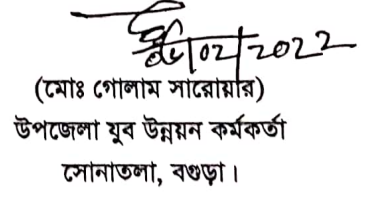 ০৮/০২/২০২২
(মোঃ গোলাম সারোয়ার)
উপজেলা যুব উন্নয়ন কর্মকর্তা
সোনাতলা, বগুড়া।